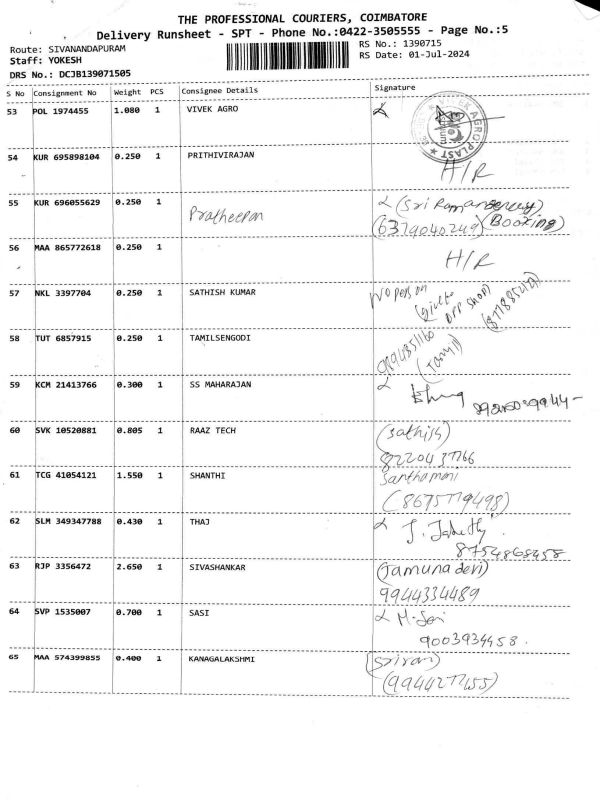 THE PROFESSIONAL COURIERS, COIMBATORE
Delivery Runsheet - SPT - Phone No.:0422-3505555 - Page No.:5
Route: SIVANANDAPURAM
RS No.: 1390715
Staff: YOKESH
RS Date: 01-Jul-2024
DRS No.: DCJB139071505
S No Consignment No Weight PCS Consignee Details Signature
53 POL 1974455 1.080 1 VIVEK AGRO
VIVEK AGRO PLAST
54 KUR 695898104 0.250 1 PRITHIVIRAJAN H/R
55 KUR 696055629 0.250 1 Pratheepan
(6379040249) (Booking)
56 MAA 865772618 0.250 1 H/R
57 NKL 3397704 0.250 1 SATHISH KUMAR No person
58 TUT 6857915 0.250 1 TAMILSENGODI
(Tamil)
59 KCM 21413766 0.300 1 SS MAHARAJAN
60 SVK 10520881 0.805 1 RAAZ TECH (Sathish)
8220437766
61 TCG 41054121 1.550 1 SHANTHI Santhamani
62 SLM 349347788 0.430 1 THAJ
8754868458
63 RJP 3356472 2.650 1 SIVASHANKAR (Jamuna devi)
9944334489
64 SVP 1535007 0.700 1 SASI
9003934458.
65 MAA 574399855 0.400 1 KANAGALAKSHMI (Sriram)
(9944277455)